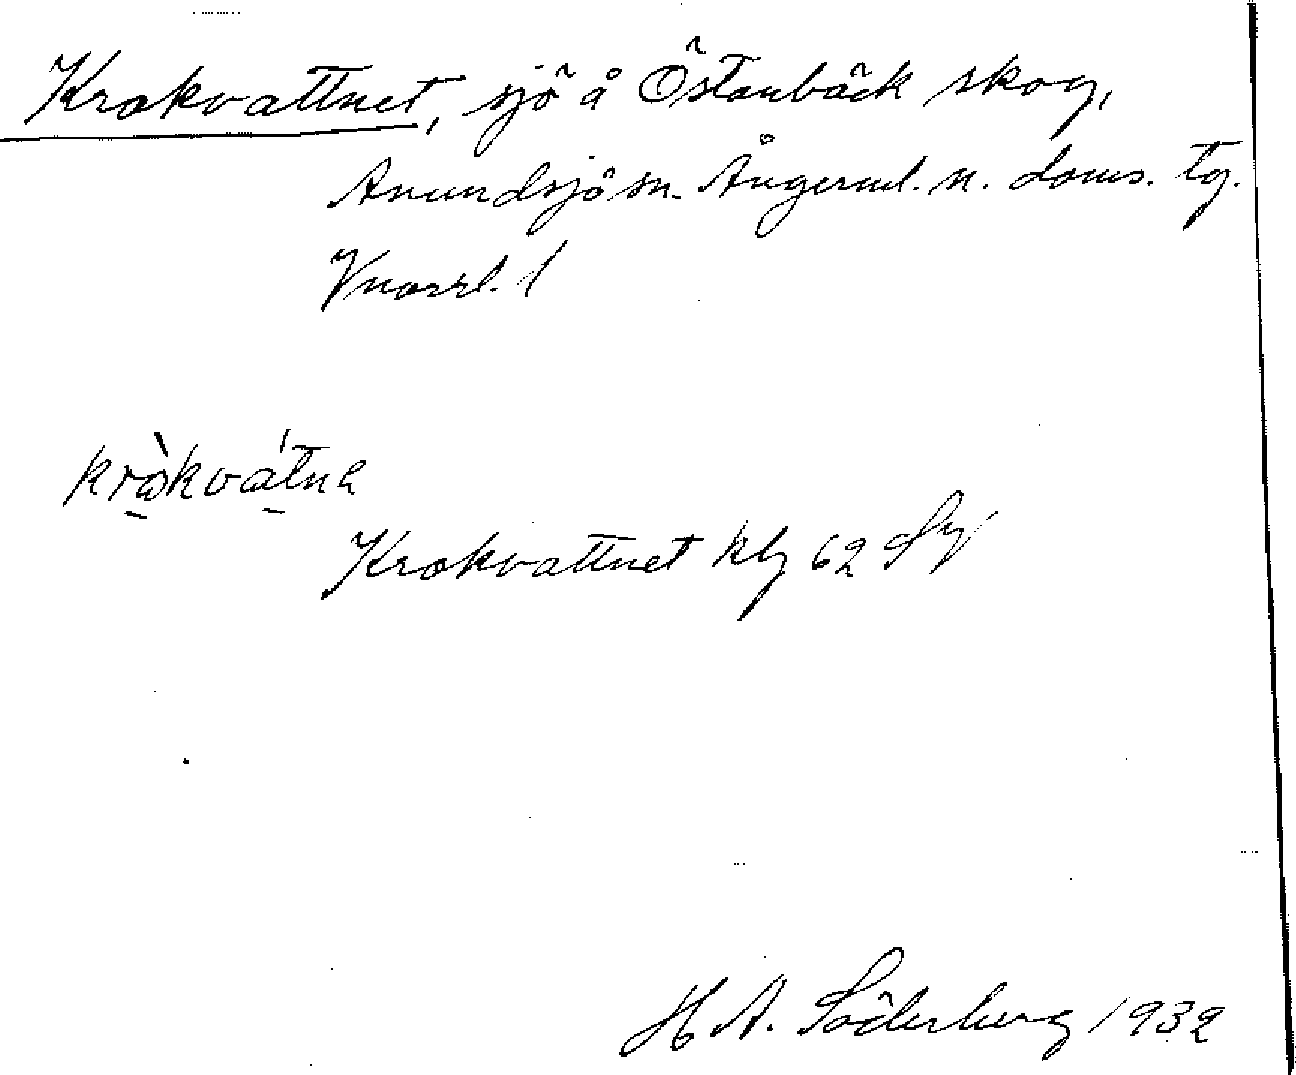 Krokvattnet, sjö å Östanbäck skog,
Anundsjö sn. Ångerml. n. doms. tg.
Vnorrl. l
kròkvátna
Krokvattnet kbg 62 Sy
H A. Söderberg 1932